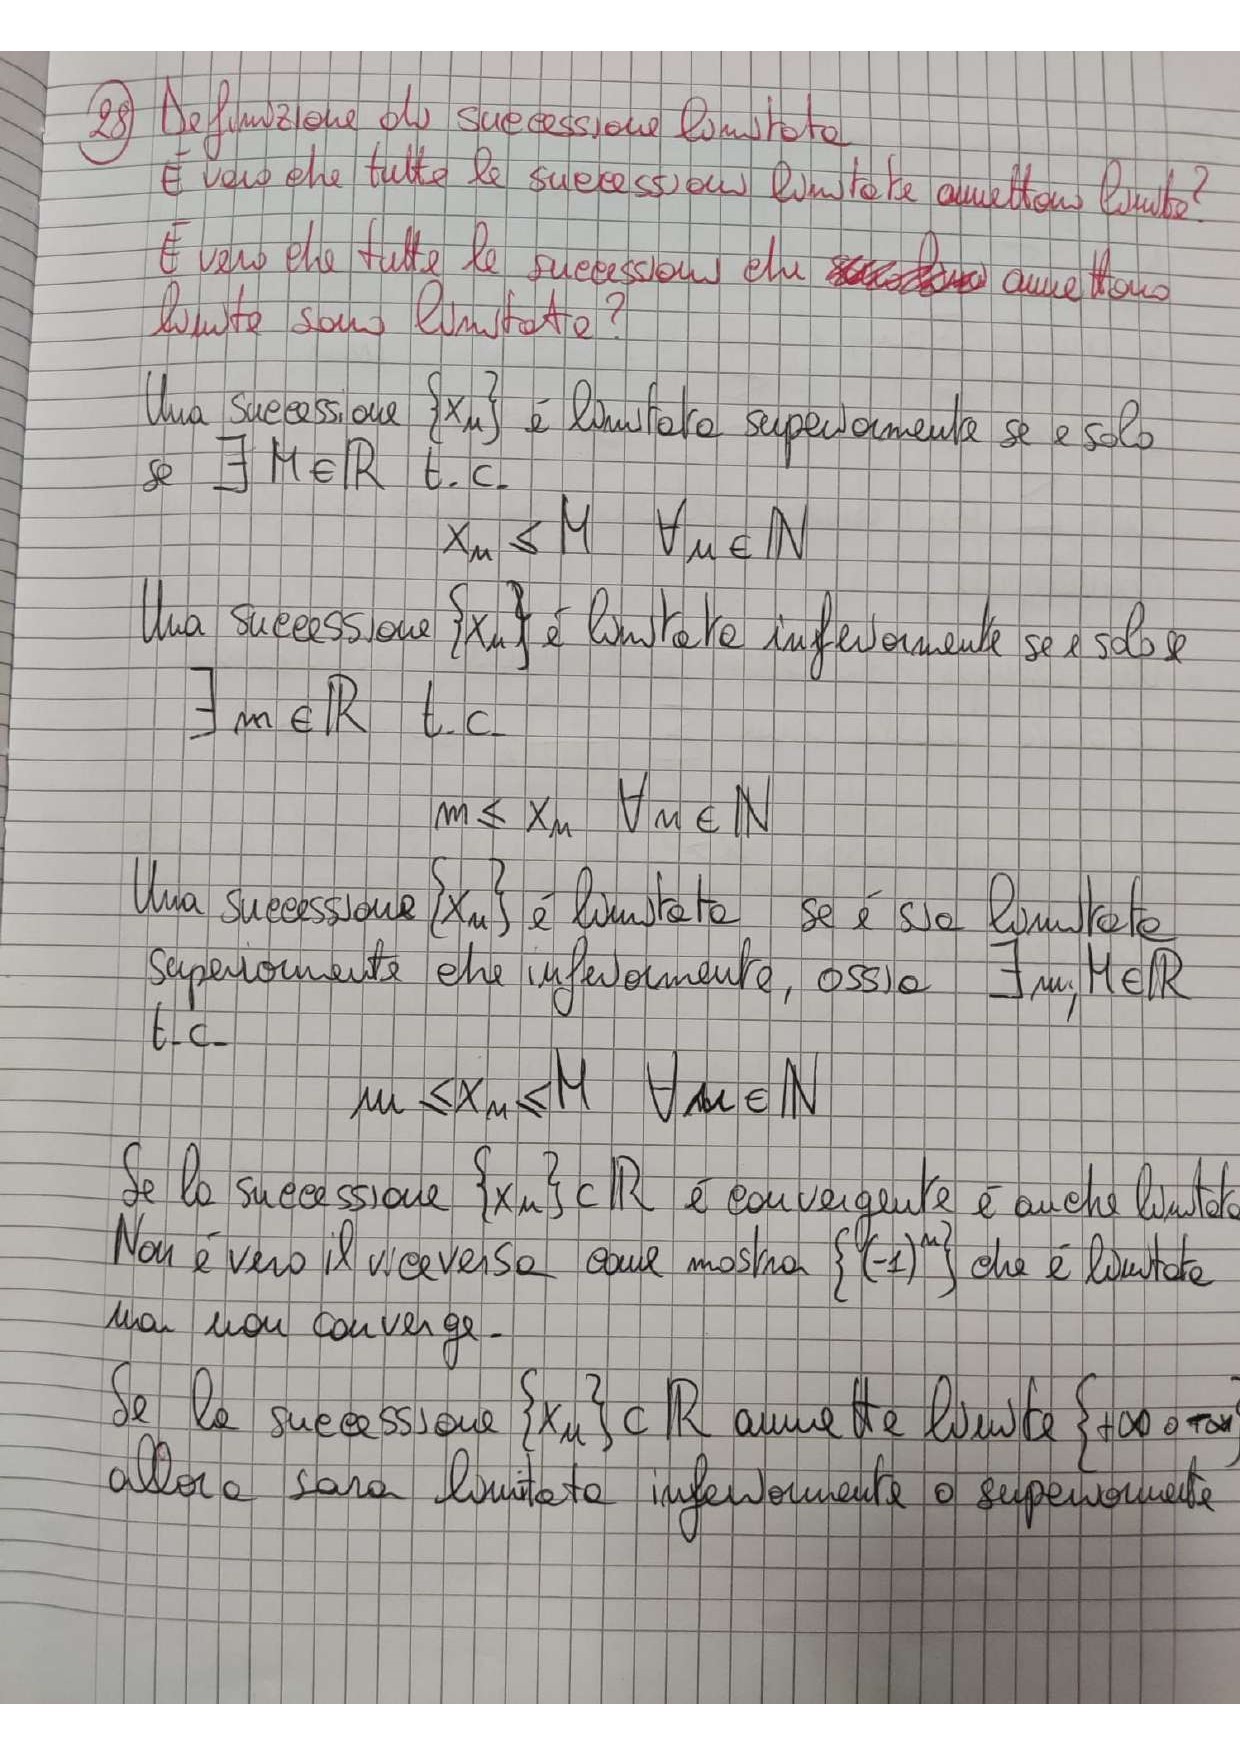 28) Definizione di successione limitata
È vero che tutte le successioni limitate ammettono limite?
È vero che tutte le successioni che ammettono
limite sono limitate?
Una successione {xₙ} è limitata superiormente se e solo
se ∃ M ∈ ℝ t.c.
xₙ ≤ M ∀n ∈ ℕ
Una successione {xₙ} é limitata inferiormente se e solo se
∃ m ∈ ℝ t.c.
m ≤ xₙ ∀n ∈ ℕ
Una successione {xₙ} é limitata se é sia limitata
superiormente che inferiormente, ossia ∃ m, M ∈ ℝ
t.c.
m ≤ xₙ ≤ M ∀n ∈ ℕ
Se la successione {xₙ} ⊂ ℝ é convergente é anche limitata
Non é vero il viceversa come mostra {(-1)ⁿ} che é limitata
ma non converge.
Se la successione {xₙ} ⊂ ℝ ammette limite {+∞ o -∞}
allora sara limitata inferiormente o superiormente